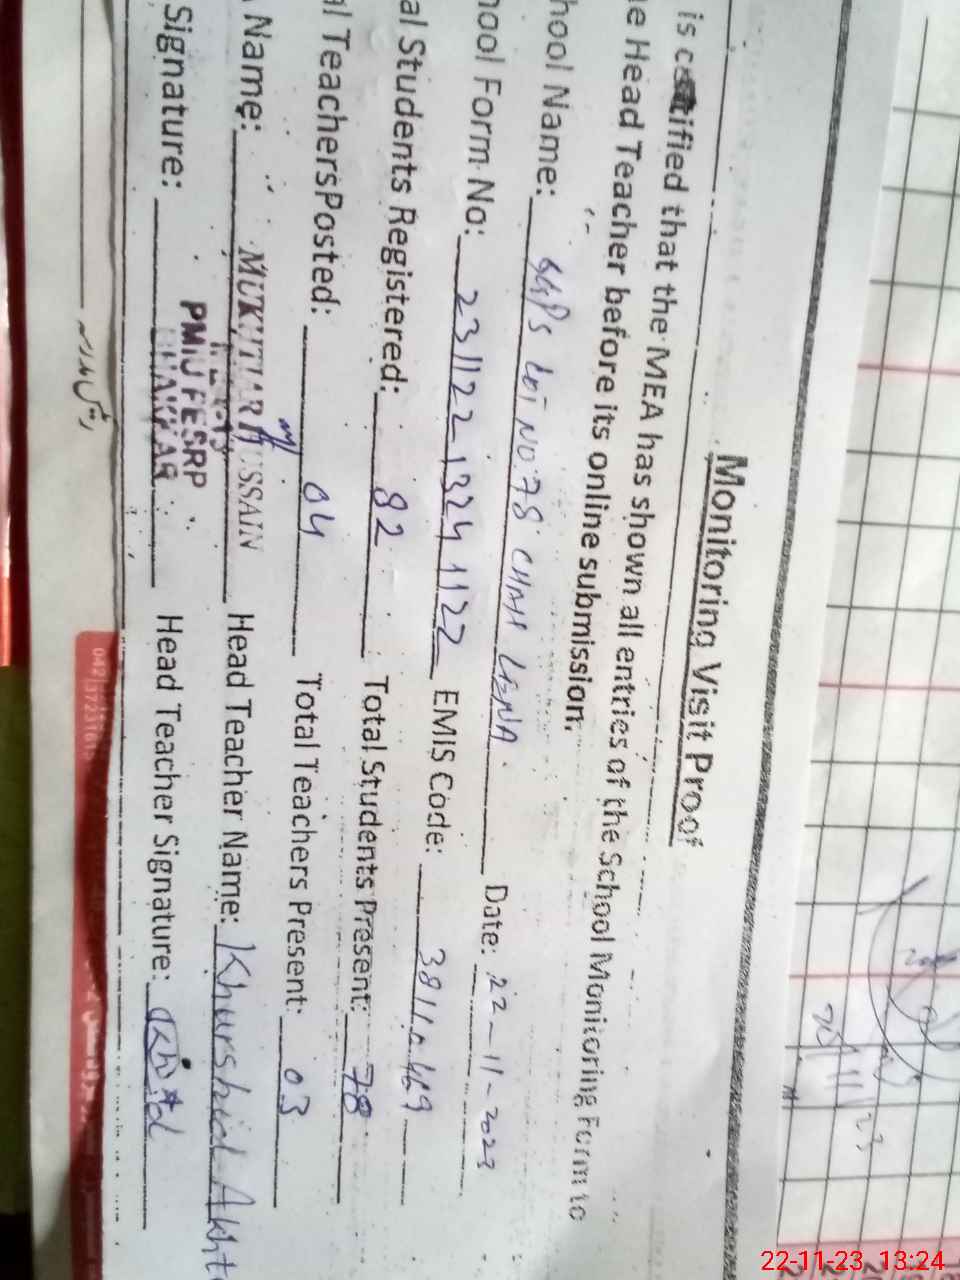 Monitoring Visit Proof
is certified that the MEA has shown all entries of the School Monitoring Form to
e Head Teacher before its online submission.
hool Name: GGPS LOT NO.78 Date: 22-11-2023
hool Form No: 231122 1324 1122 EMIS Code:
al Students Registered: 82 Total Students Present: 78
al Teachers Posted: 04 Total Teachers Present: 03
Name: MUKHTIAR HUSSAIN Head Teacher Name: Khurshid Akht
Signature: PMIU PESRP BHAKKAR Head Teacher Signature:
22-11-23 13:24